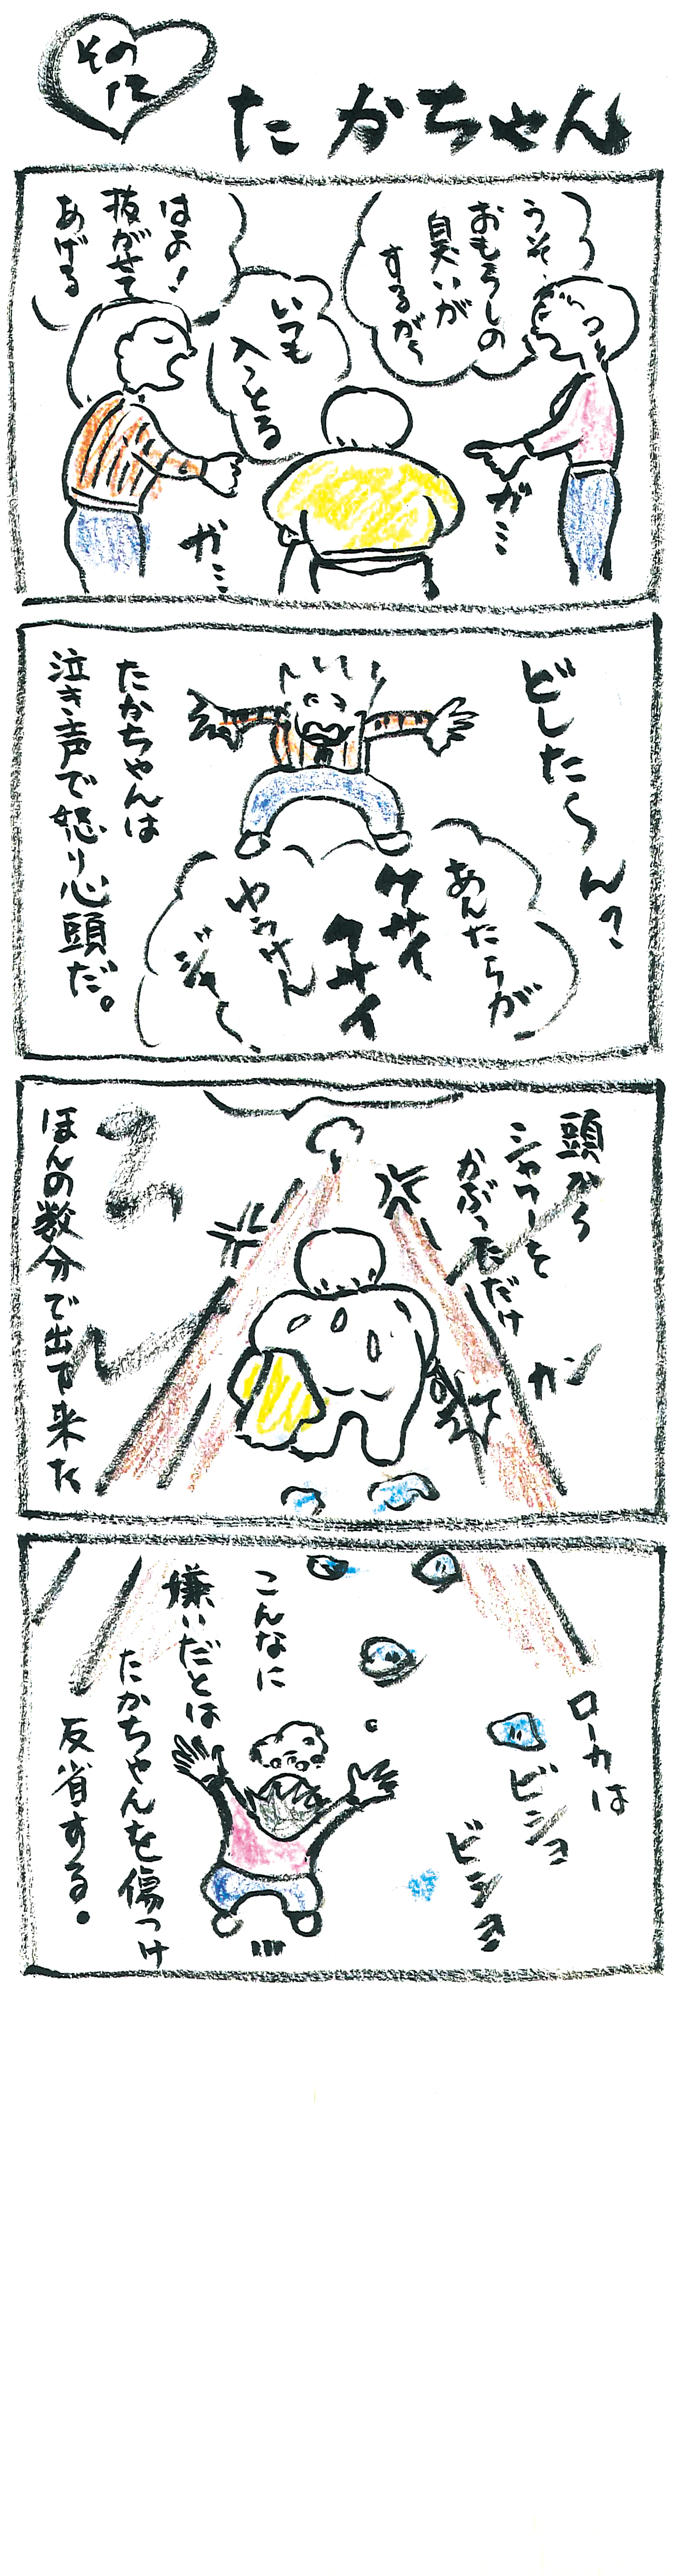 その
12
たかちゃん
おもらしの
臭いが
するがく
いつも
入っとる
はよ!
抜がせて
あげる
ガミ
ガミ
どしたらんっ
あんたちが
クサイ
クサイ
ゆうけん
ジャ〜
たかちゃんは
泣き声で怒り心頭だ。
頭から
シャワーを
かぶっただけ
カン
ほんの数分で出て来た
ローカは
ビショ
ビショ
こんなに
嫌いだとは
たかちゃんを傷つけ
反省する。